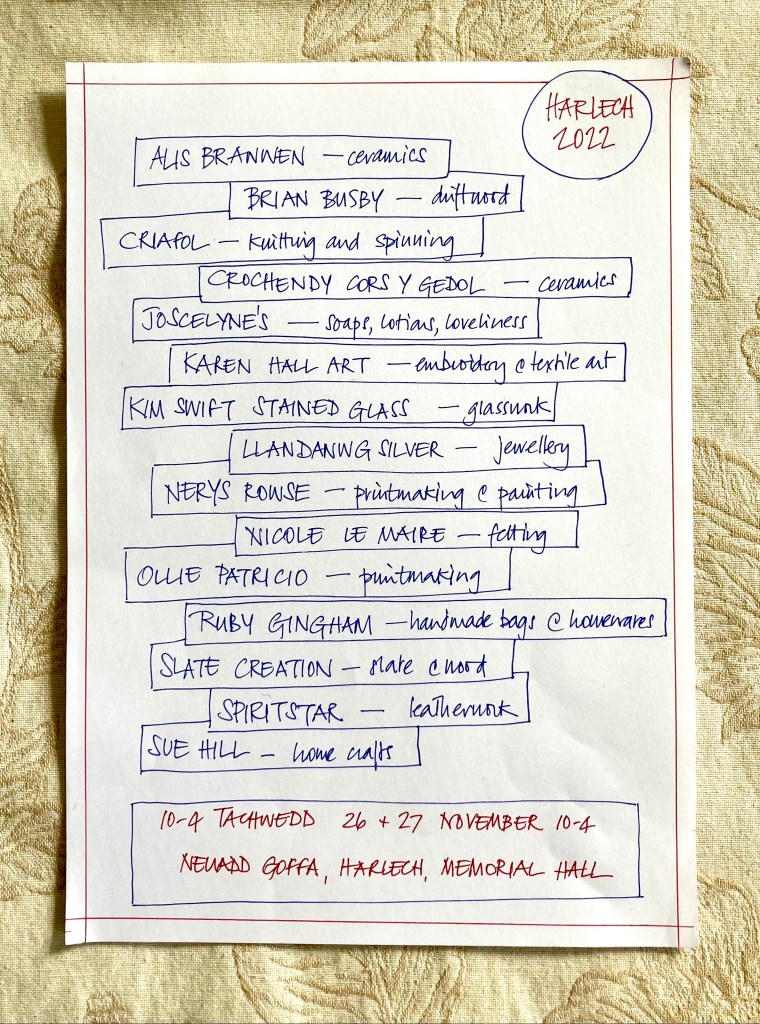 HARLECH
2022
ALIS BRANWEN — ceramics
BRIAN BUSBY — driftwood
CRIAFOL — knitting and spinning
CROCHENDY CORS Y GEDOL — ceramics
JOSCELYNE'S — soaps, lotions, loveliness
KAREN HALL ART — embroidery & textile art
KIM SWIFT STAINED GLASS — glasswork
LLANDANWG SILVER — jewellery
NERYS ROWSE — printmaking & painting
NICOLE LE MAIRE — felting
OLLIE PATRICIO — printmaking
RUBY GINGHAM — handmade bags & homewares
SLATE CREATION — slate & wood
SPIRITSTAR — leatherwork
SUE HILL — home crafts
10-4 TACHWEDD 26 + 27 NOVEMBER 10-4
NEUADD GOFFA, HARLECH, MEMORIAL HALL